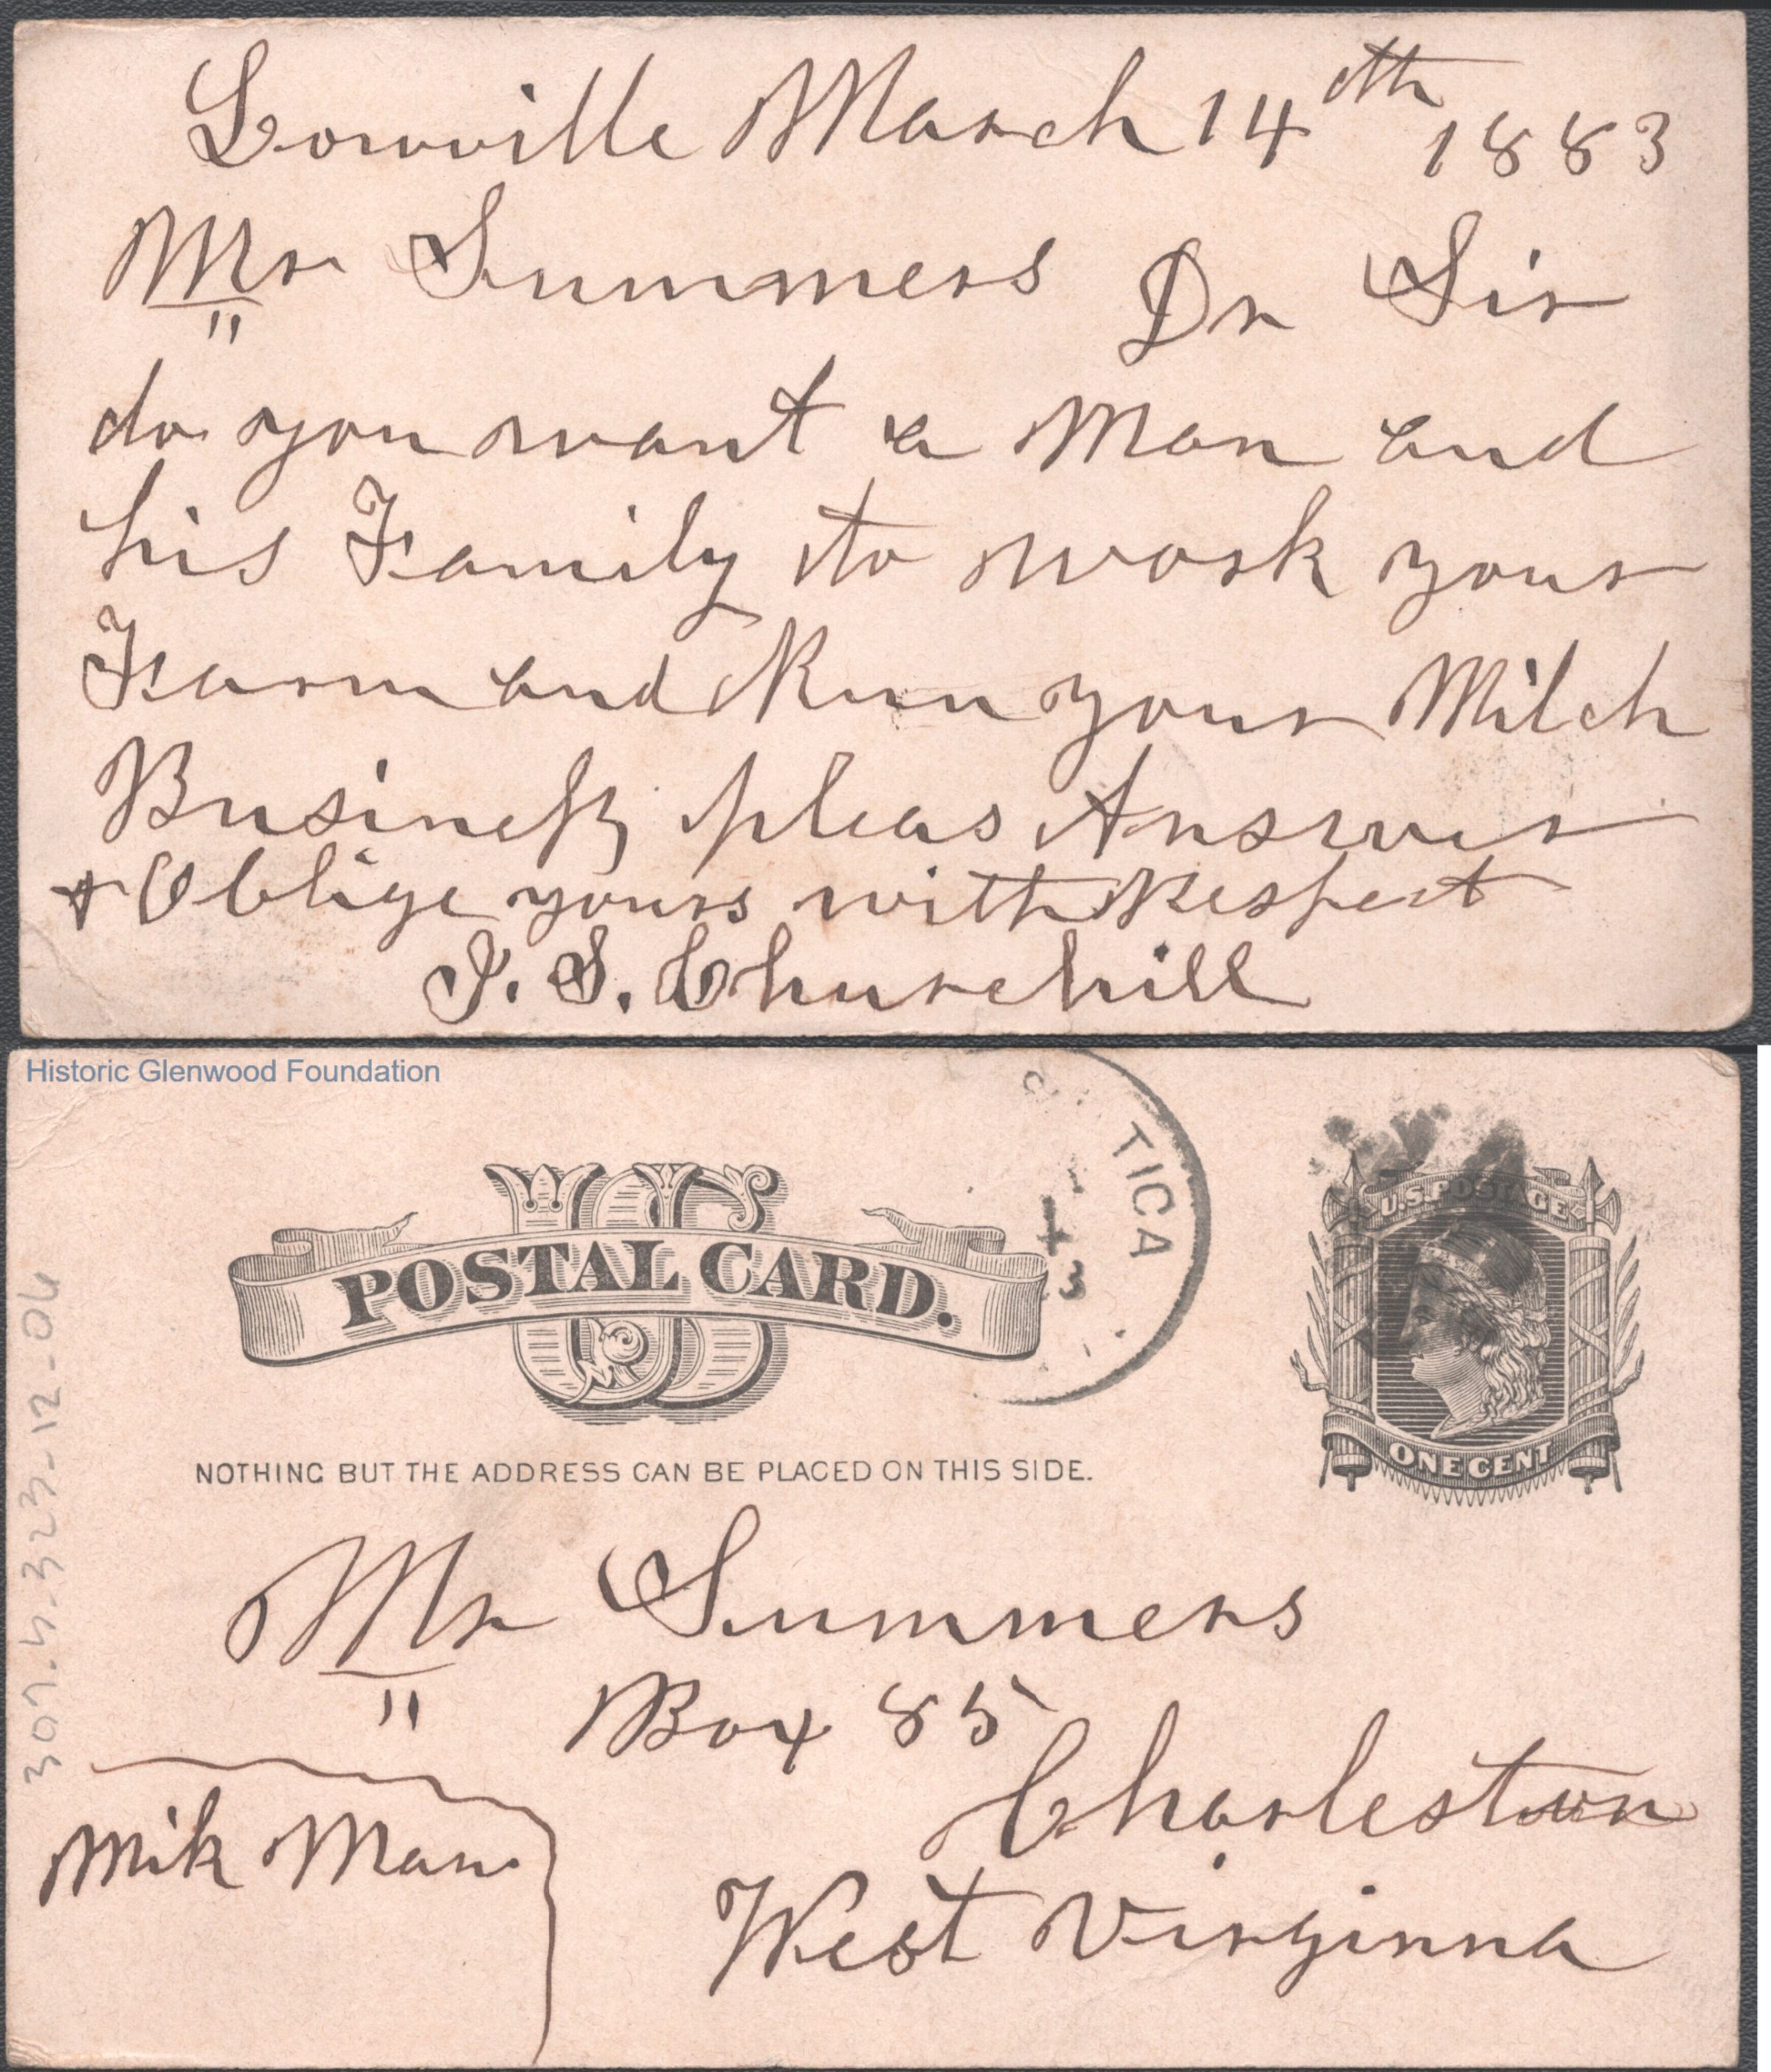 Lowville March 14th 1883
Mr Summers Dr Sir
do you want a Man and
his Family to work your
Farm and Run your Milch
Business pleas Answer
& Oblige yours with Respect
J. S. Churchill
Historic Glenwood Foundation
TICA
US
POSTAL CARD.
U.S. POSTAGE
ONE CENT
NOTHING BUT THE ADDRESS CAN BE PLACED ON THIS SIDE.
Mr Summers
Box 85
Charleston
West Virginna
Milk Man
307.4-323-12-06